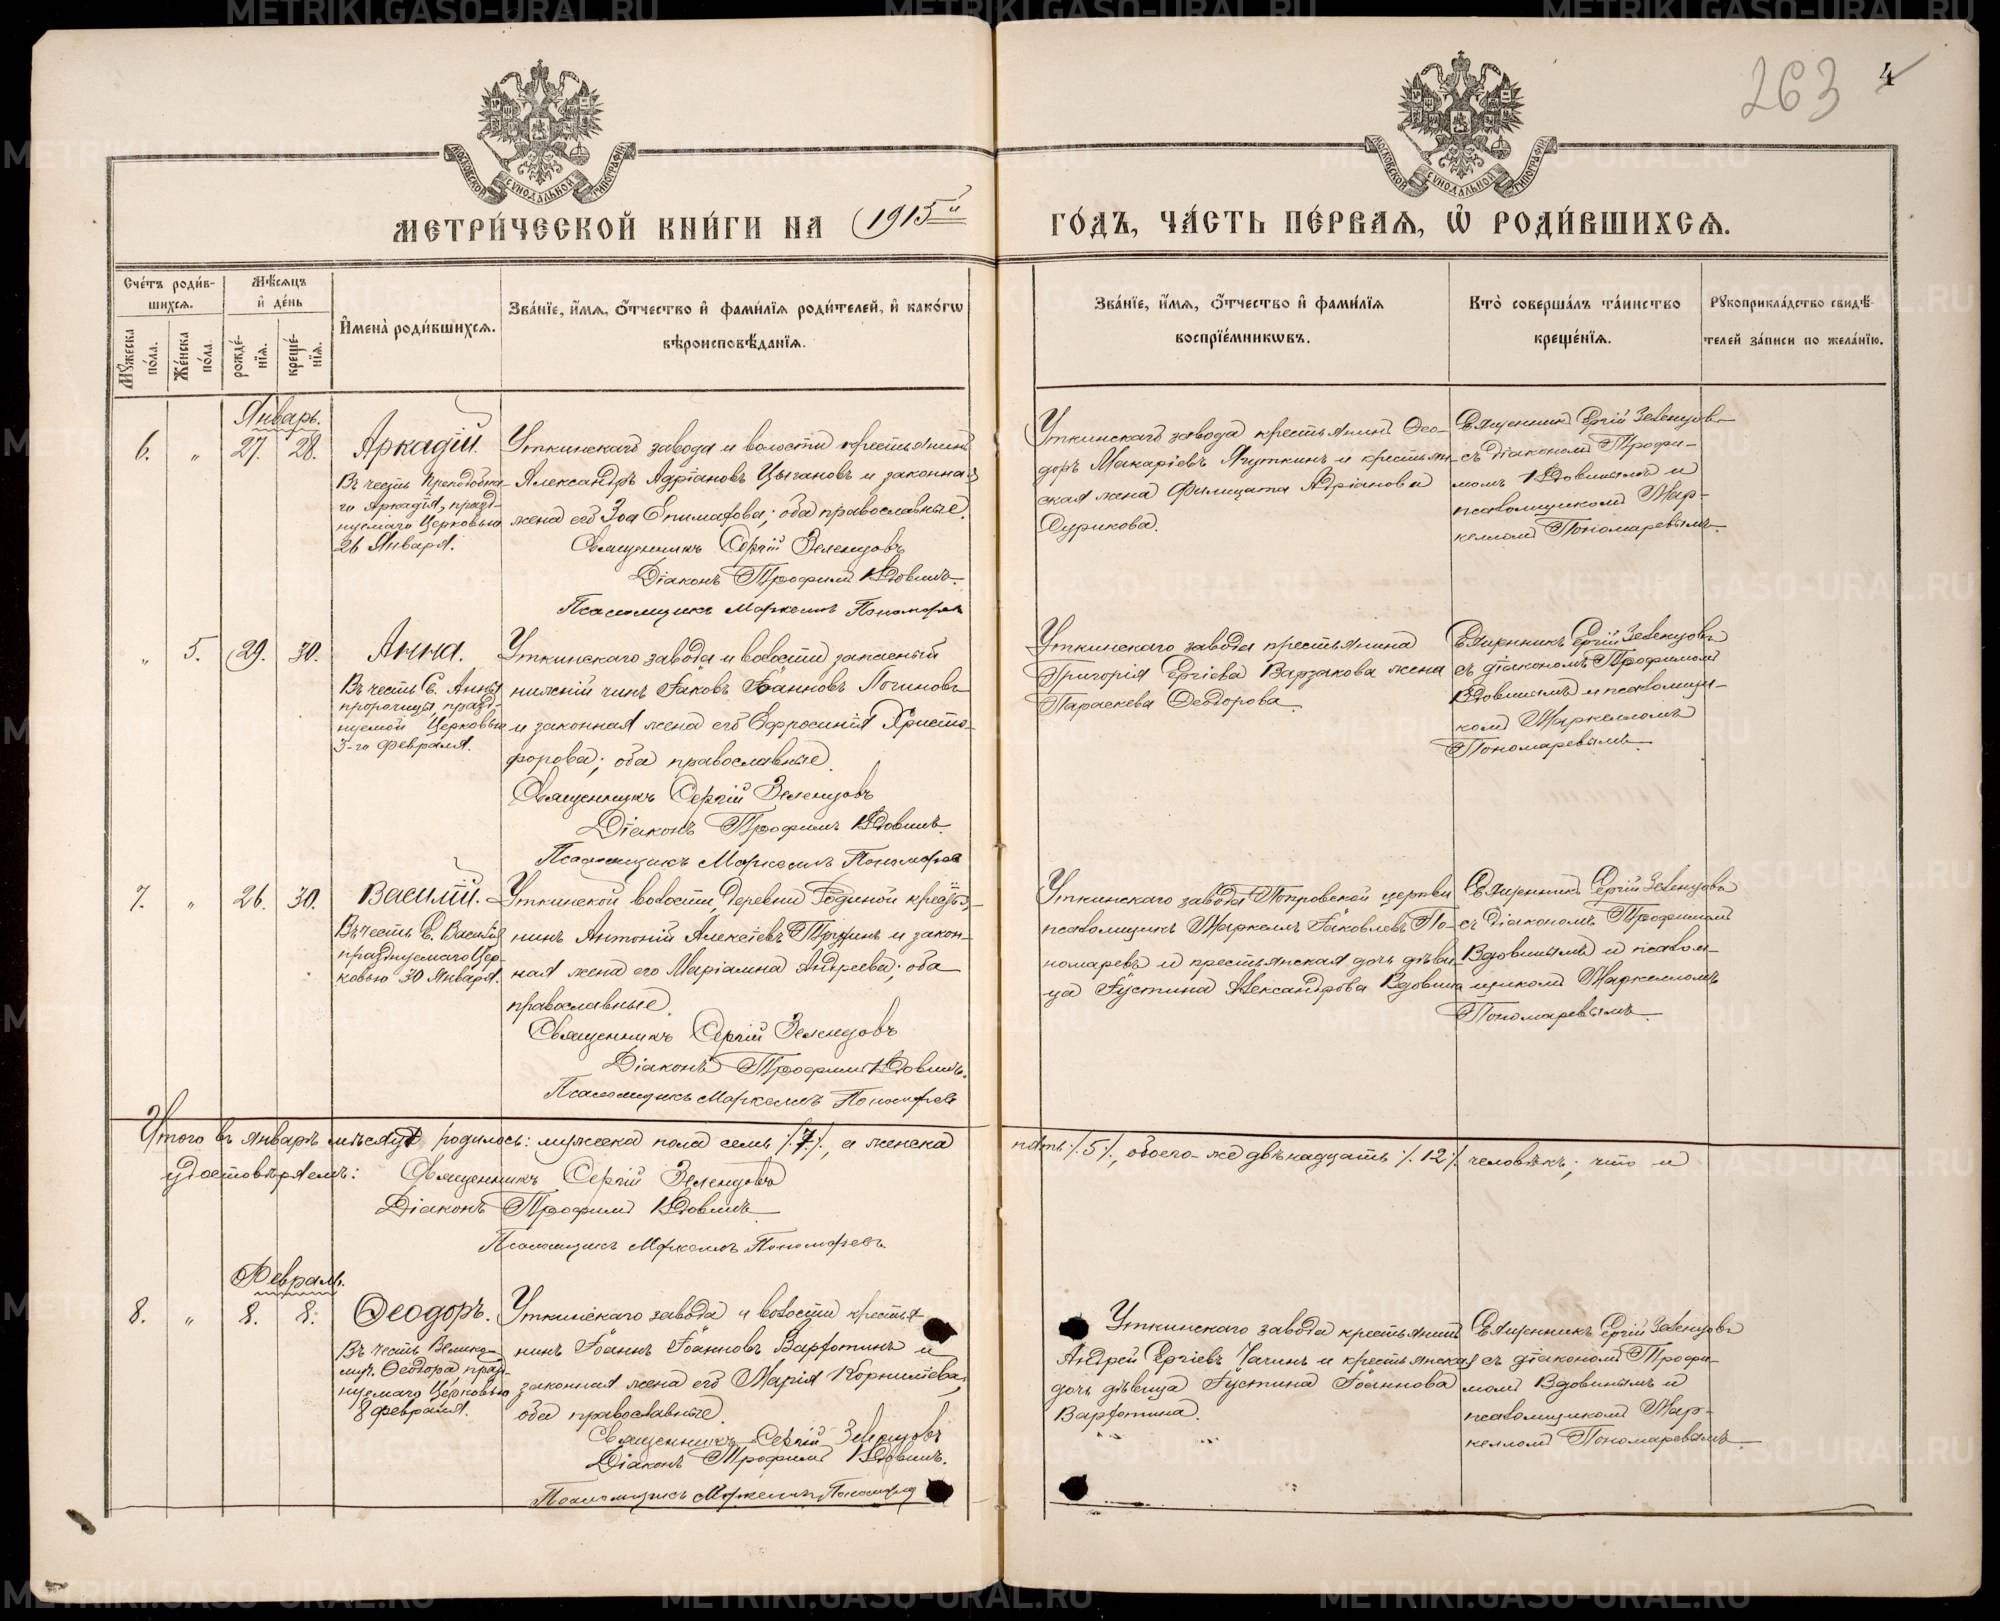 263 4
МОСКОВСКОЙ СѴНОДАЛЬНОЙ ТИПОГРАФІИ
МОСКОВСКОЙ СѴНОДАЛЬНОЙ ТИПОГРАФІИ
МЕТРИ́ЧЕСКОЙ КНИ́ГИ НА 1915й
ГО́ДЪ, ЧА́СТЬ ПЕ́РВАѦ, Ѽ РОДИ́ВШИХСѦ.
Сче́тъ роди́вшихся.
Мꙋ́жеска по́ла.
Же́нска по́ла.
Мѣ́сяцъ и́ де́нь
рожде́нїѧ.
креще́нїѧ.
И҆мена̀ роди́вшихсѧ.
Зва́нїе, и҆́мѧ, ѻ҆́тчество и҆ фами́лїѧ роди́телей, и҆ како́гѡ
вѣроисповѣ́данїѧ.
Зва́нїе, и҆́мѧ, ѻ҆́тчество и҆ фами́лїѧ
воспрїе́мникѡвъ.
Кто̀ соверша́лъ та́инство
креще́нїѧ.
Рꙋкоприкла́дство свидѣ́-
телей за́писи по жела́нїю.
Январь.
6. „ 27. 28.
Аркадій.
Въ честь Преподобна-
го Аркадія, празд-
нуемаго Церковью
26 Января.
Уткинскаго завода и волости крестьянинъ
Александръ Адріановъ Цыгановъ и законная
жена его Зоя Епимахова; оба православные.
Священникъ Сергій Зеленцовъ
Діаконъ Трофимъ Вдовинъ.
Псаломщикъ Маркеллъ Пономаревъ
Уткинскаго завода крестьянинъ Ѳео-
доръ Макаріевъ Ягуткинъ и крестьян-
ская жена Филицата Адріанова
Сурикова.
Священникъ Сергій Зеленцовъ
съ діакономъ Трофи-
момъ Вдовинымъ и
псаломщикомъ Мар-
келломъ Пономаревымъ.
„ 5. 29. 30.
Анна.
Въ честь Св. Анны
пророчицы, празд-
нуемой Церковью
3-го февраля.
Уткинскаго завода и волости запасный
нижній чинъ Іаковъ Іоанновъ Логиновъ
и законная жена его Ефросинія Христо-
форова; оба православные.
Священникъ Сергій Зеленцовъ
Діаконъ Трофимъ Вдовинъ.
Псаломщикъ Маркеллъ Пономаревъ
Уткинскаго завода крестьянина
Григорія Сергіева Варзакова жена
Параскева Ѳеодорова.
Священникъ Сергій Зеленцовъ
съ діакономъ Трофимомъ
Вдовинымъ и псаломщи-
комъ Маркелломъ
Пономаревымъ.
7. „ 26. 30.
Василій.
Въ честь Св. Василія
празднуемаго Цер-
ковью 30 Января.
Уткинской волости, деревни Родиной крестья-
нинъ Антоній Алексіевъ и закон-
ная жена его Маріамна Андреева; оба
православные.
Священникъ Сергій Зеленцовъ
Діаконъ Трофимъ Вдовинъ.
Псаломщикъ Маркеллъ Пономаревъ
Уткинскаго завода Покровской церкви
псаломщикъ Маркеллъ Іаковлевъ По-
номаревъ и крестьянская дочь дѣви-
ца Іустина Александрова Вдовина
Священникъ Сергій Зеленцовъ
съ діакономъ Трофимомъ
Вдовинымъ и псалом-
щикомъ Маркелломъ
Пономаревымъ.
Итого въ январѣ мѣсяцѣ родилось: мужеска пола семь /7/, а женска
пять /5/, обоего-же двѣнадцать /12/ человѣкъ; что и
удостовѣряемъ: Священникъ Сергій Зеленцовъ
Діаконъ Трофимъ Вдовинъ
Псаломщикъ Маркеллъ Пономаревъ.
Февраль.
8. „ 8. 8.
Ѳеодоръ.
Въ честь Велико-
муч. Ѳеодора, празд-
нуемаго Церковью
8 февраля.
Уткинскаго завода и волости крестья-
нинъ Іоаннъ Іоанновъ Варѳотинъ и
законная жена его Марія Корниліева,
оба православные.
Священникъ Сергій Зеленцовъ
Діаконъ Трофимъ Вдовинъ.
Псаломщикъ Маркеллъ Пономаревъ
Уткинскаго завода крестьянинъ
Андрей Сергіевъ Чачинъ и крестьянская
дочь дѣвица Іустина Іоаннова
Варѳотина.
Священникъ Сергій Зеленцовъ
съ діакономъ Трофи-
момъ Вдовинымъ и
псаломщикомъ Мар-
келломъ Пономаревымъ.
METRIKI.GASO-URAL.RU